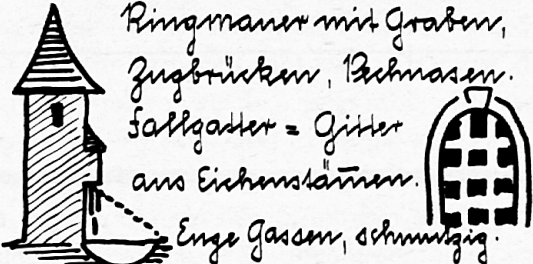 Ringmauer mit Graben,
Zugbrücken, Pechnasen.
Fallgatter = Gitter
aus Eichenstäm̅en.
Enge Gassen, schmutzig.